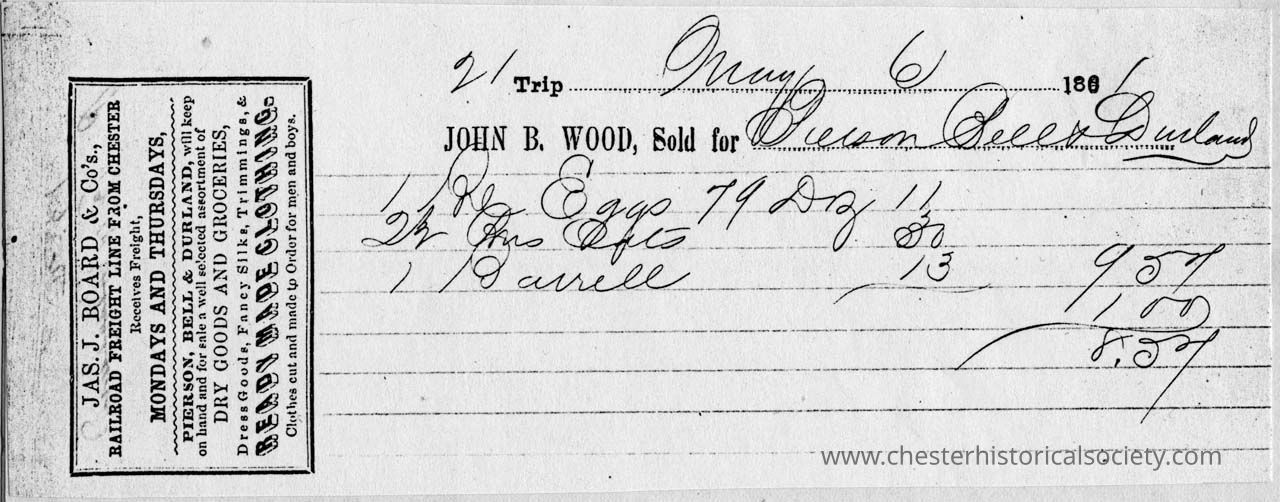 JAS. J. BOARD & Co's.,
RAILROAD FREIGHT LINE FROM CHESTER
Receives Freight,
MONDAYS AND THURSDAYS,
PIERSON, BELL & DURLAND, will keep
on hand and for sale a well selected assortment of
DRY GOODS AND GROCERIES,
Dress Goods, Fancy Silks, Trimmings, &
READY MADE CLOTHING.
Clothes cut and made to Order for men and boys.
21 Trip May 6 1861
JOHN B. WOOD, Sold for Pierson Bell & Durland
1 Eggs 79 Doz 11
2
1 Barrell 13 957
100
8.57
www.chesterhistoricalsociety.com